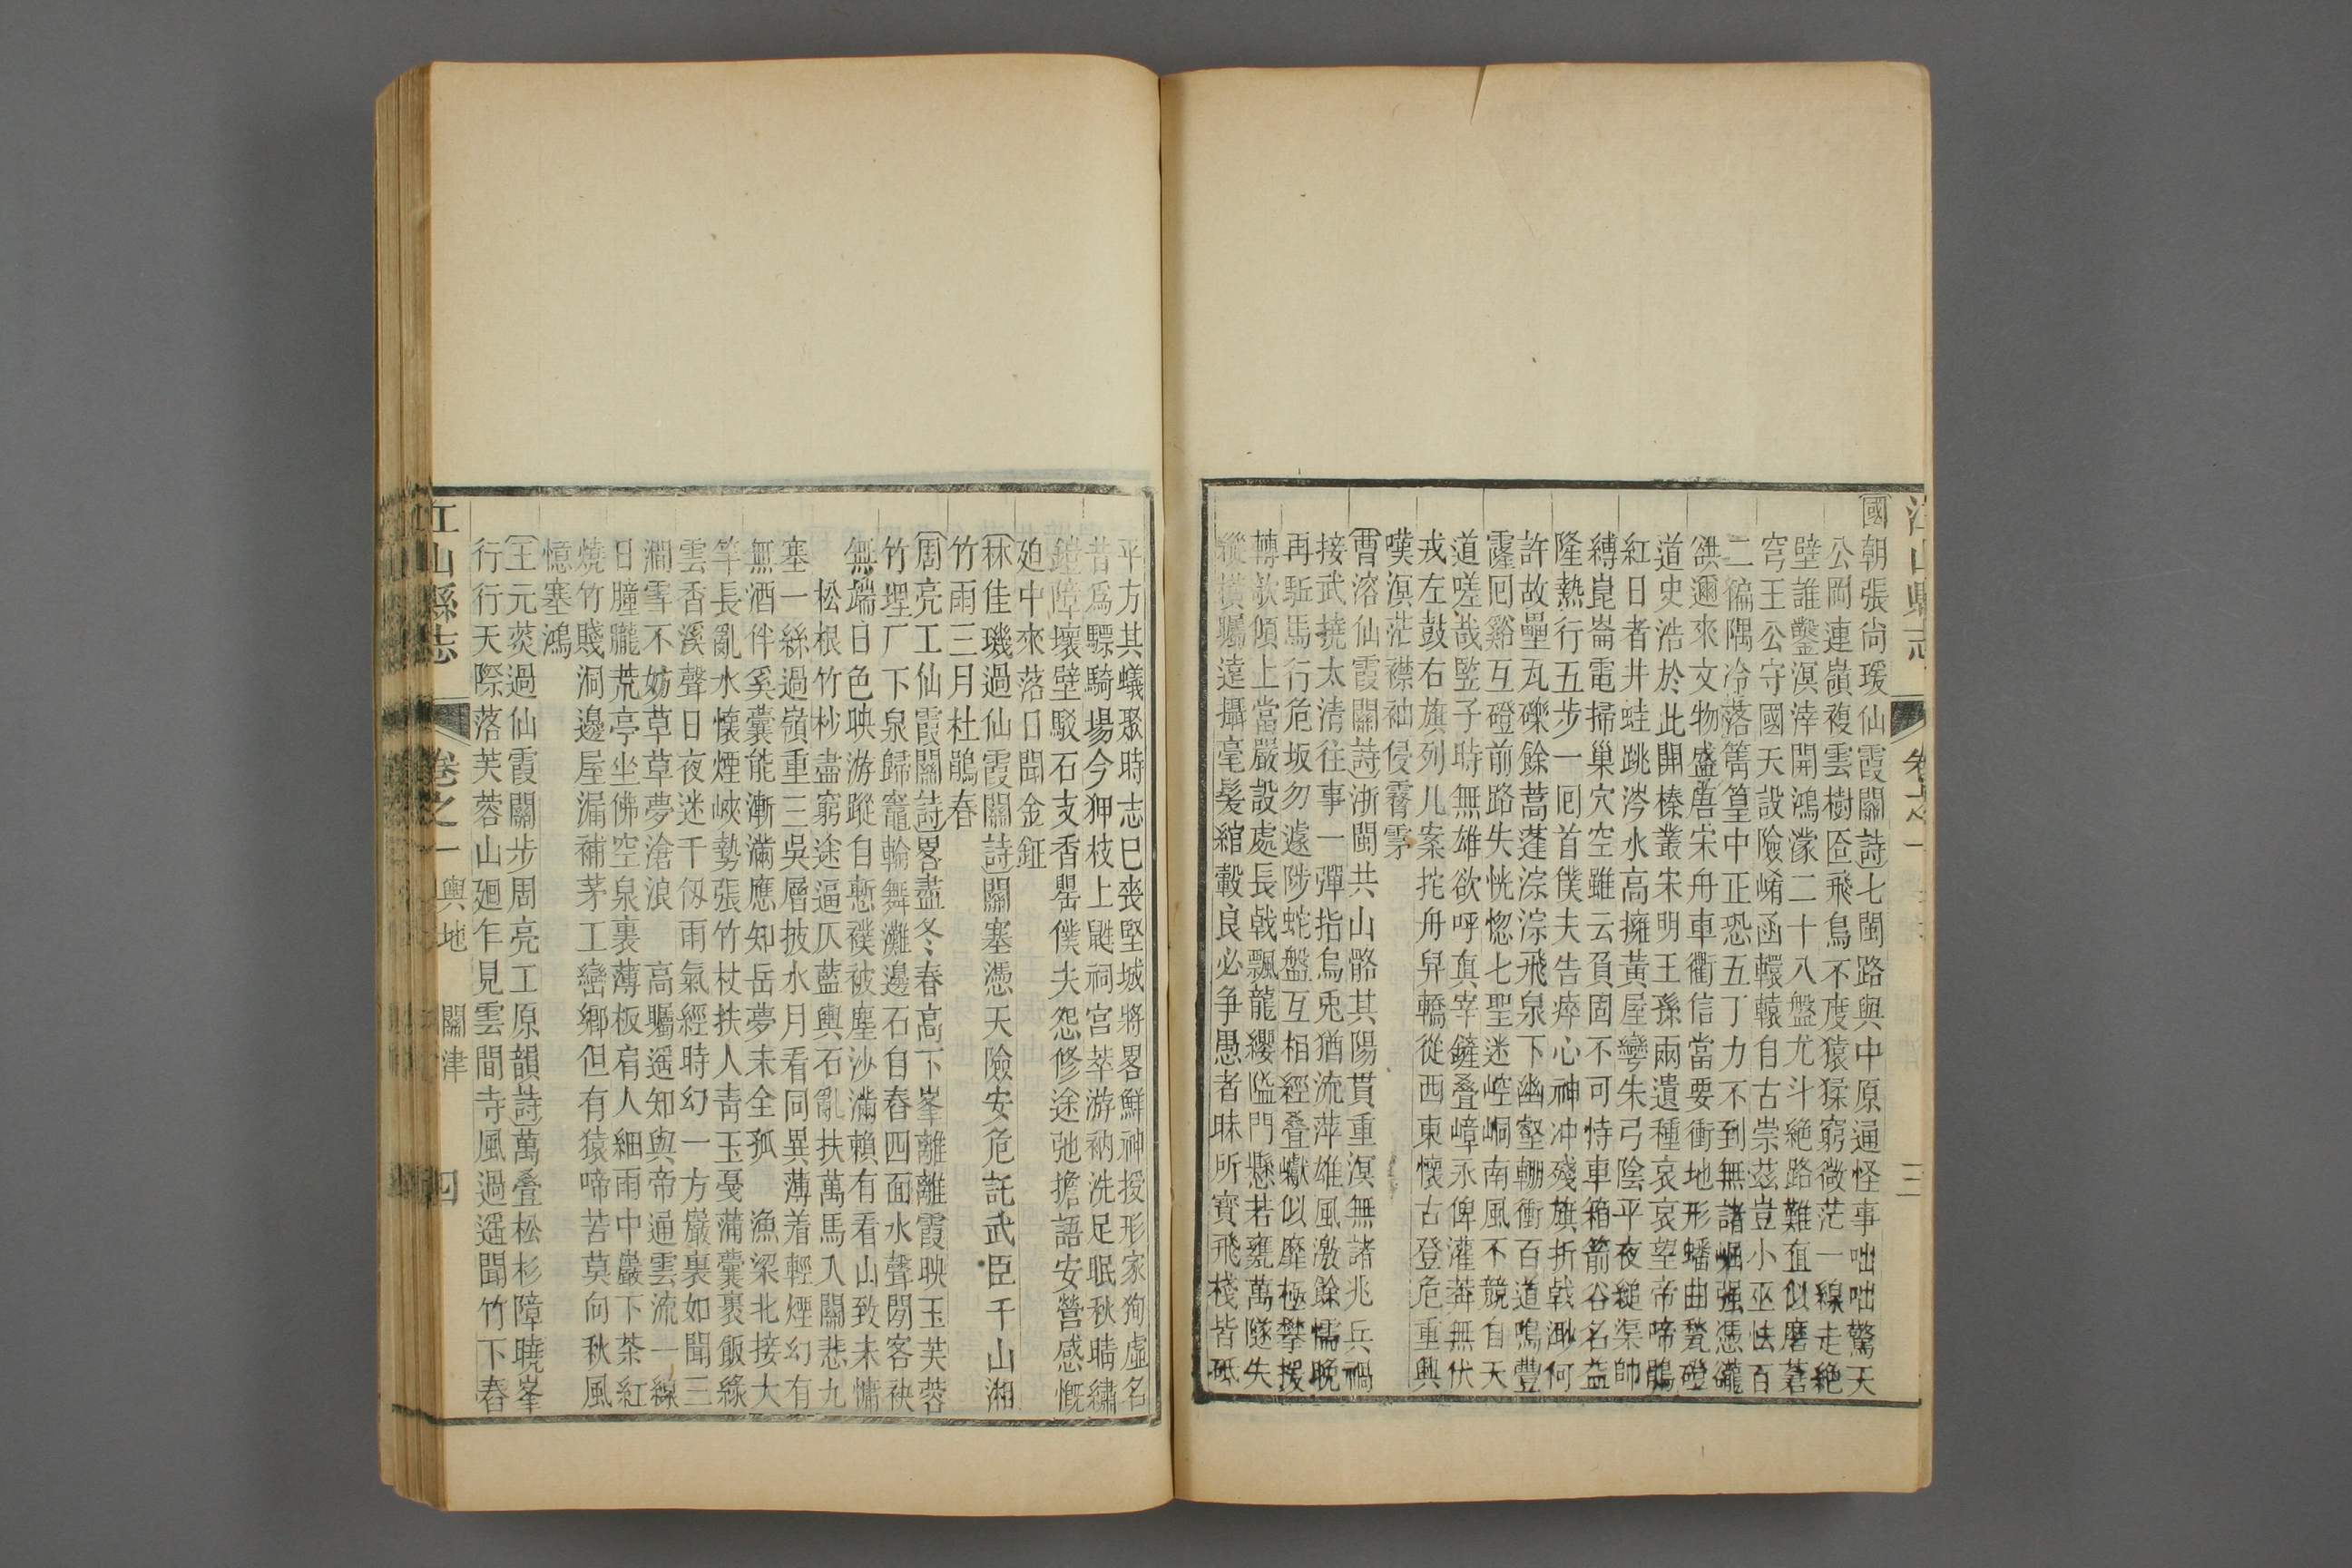 國朝張尚瑗仙霞關詩七閩路與中原通怪事咄咄驚天
公岡連嶺複雲樹匝飛鳥不度猿猱窮微茫一線走絶
壁誰鑿溟涬開鴻濛二十八盤尤斗絶路難直似磨蒼
穹王公守國天設險崤函轘轅自古崇茲豈小巫怯百
二偏隅冷落篝篁中正恐五丁力不到無諸崛强憑巃
嵷邇來文物盛唐宋舟車衢信當要衝地形蟠曲甃磴
道史浩於此開榛叢宋明王孫兩遺種哀哀望帝啼鵑
紅日者井蛙跳涔水高擁黃屋彎朱弓陰平夜縋渠帥
縛崑崙電掃巢穴空雖云負固不可恃車箱箭谷名益
隆熱行五步一囘首僕夫告瘁心神冲殘旗折戟渺何
許故壘瓦礫餘蒿蓬淙淙飛泉下幽壑輣衝百道鳴豐
霳囘谿互磴前路失恍惚七聖迷崆峒南風不競自天
道嗟哉監子時無雄欲呼真宰鏟叠嶂永俾灌莽無伏
戎左鼓右旗列几案挓舟舁轎從西東懷古登危重興
嘆溟茫襟袖侵霿雺
曹溶仙霞關詩浙閩共山骼其陽貫重溟無諸兆兵禍
接武撓太清往事一彈指烏兎猶流萍雄風激餘懦晚
再駈馬行危坂勿遽陟蛇盤互相經叠巘似靡極攀援
轉欹傾上當嚴設處長戟飄龍纓隘門懸若甕萬隧失
縱橫矚遠攝毫髪綰轂良必爭愚者昧所寶飛棧皆砥
江山縣志 卷之一 三
平方其蟻聚時志已喪堅城將畧鮮神授形家狥虛名
昔爲驃騎場今狎枝上鼪祠宮萃游衲洗足眠秋晴繡
鎧障壞壁駁石支香罌僕夫怨修途弛擔語安營感慨
廹中來落日聞金鉦
林佳璣過仙霞關詩關塞憑天險安危託武臣千山湘
竹雨三月杜鵑春
周亮工仙霞關詩畧盡冬春高下峯離離霞映玉芙蓉
竹埋厂下泉歸竈輪舞灘邊石自舂四面水聲閉客袂
無端日色映游蹤自慙襆被塵沙滿賴有看山致未慵
松根竹杪盡窮途逼仄藍輿石亂扶萬馬入關悲九
塞一絲過嶺重三吳層披水月看同異薄着輕煙幻有
無酒伴奚囊能漸滿應知岳夢未全孤　漁梁北接大
竿長亂水懷煙峽勢張竹杖扶人靑玉戞蒲囊裹飯綠
雲香溪聲日夜迷千仭雨氣經時幻一方巖裏如聞三
澗雪不妨草草夢滄浪　高矚遥知與帝通雲流一線
日朣朧荒亭坐佛空泉裏薄板肩人細雨中巖下茶紅
燒竹賤洞邊屋漏補茅工巒鄉但有猿啼苦莫向秋風
憶塞鴻
王元蓘過仙霞關步周亮工原韻詩萬叠松杉障曉峯
行行天際落芙蓉山廻乍見雲間寺風過遥聞竹下舂
江山縣志 卷之一 輿地 關津 四